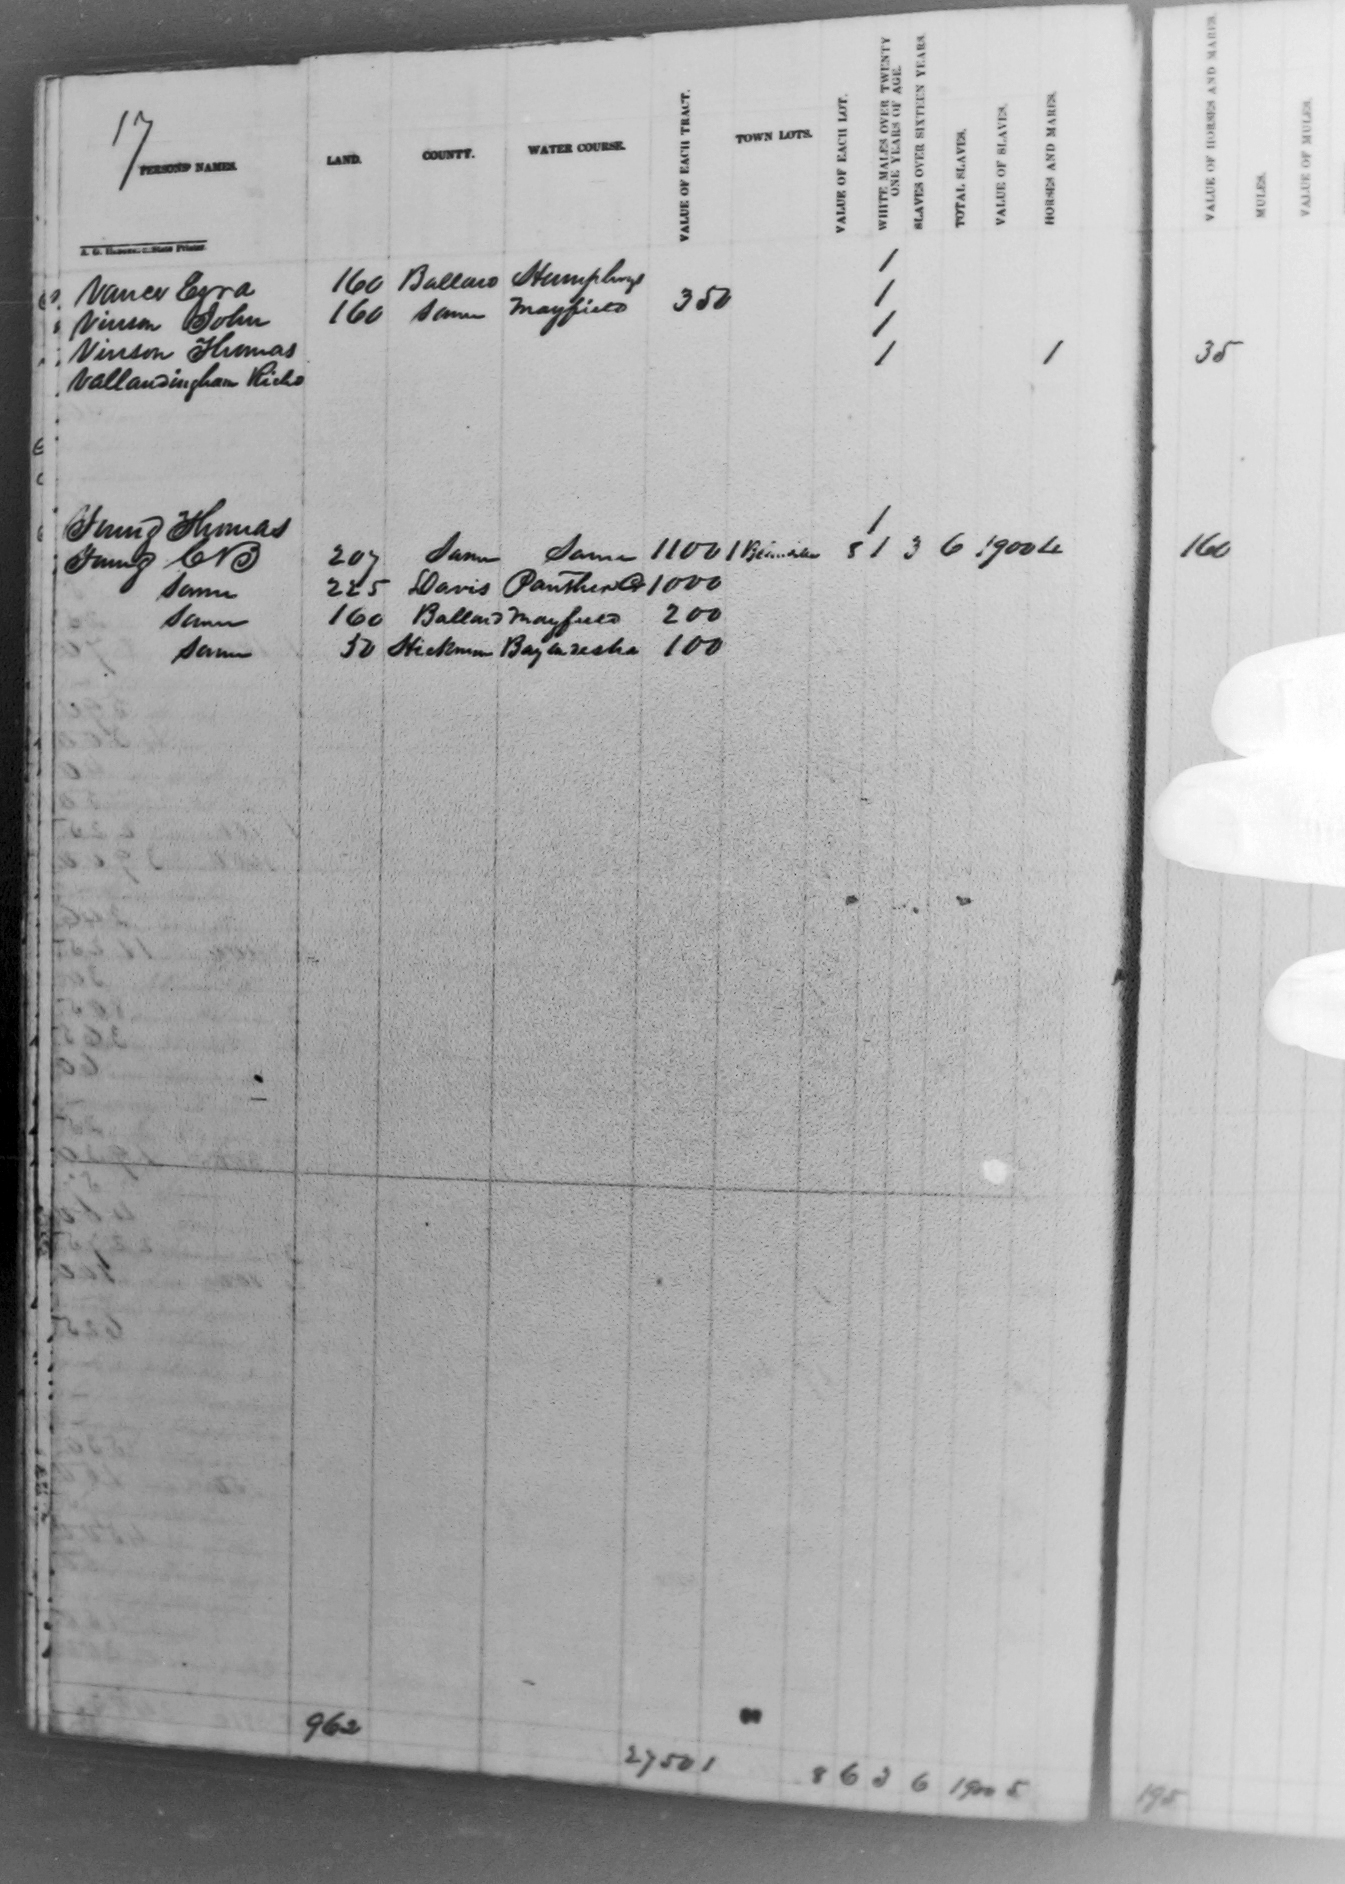 17
PERSONS' NAMES. LAND. COUNTY. WATER COURSE. VALUE OF EACH TRACT. TOWN LOTS. VALUE OF EACH LOT. WHITE MALES OVER TWENTY ONE YEARS OF AGE. SLAVES OVER SIXTEEN YEARS. TOTAL SLAVES. VALUE OF SLAVES. HORSES AND MARES. VALUE OF HORSES AND MARES. MULES. VALUE OF MULES.
State Printer
Vancer Ezra 160 Ballard Humphreys 1
Vinson John 160 Same Mayfield 350 1
Vinson Thomas 1
Vallandingham Richd 1 1 35
Young Thomas 1
Young 207 Same Same 1100 1 8 1 3 6 1900 4 160
Same 225 Davis Panther Cr 1000
Same 160 Ballard Mayfield 200
Same 50 Hickman 100
962
2750 1 8 6 3 6 1900 5 195